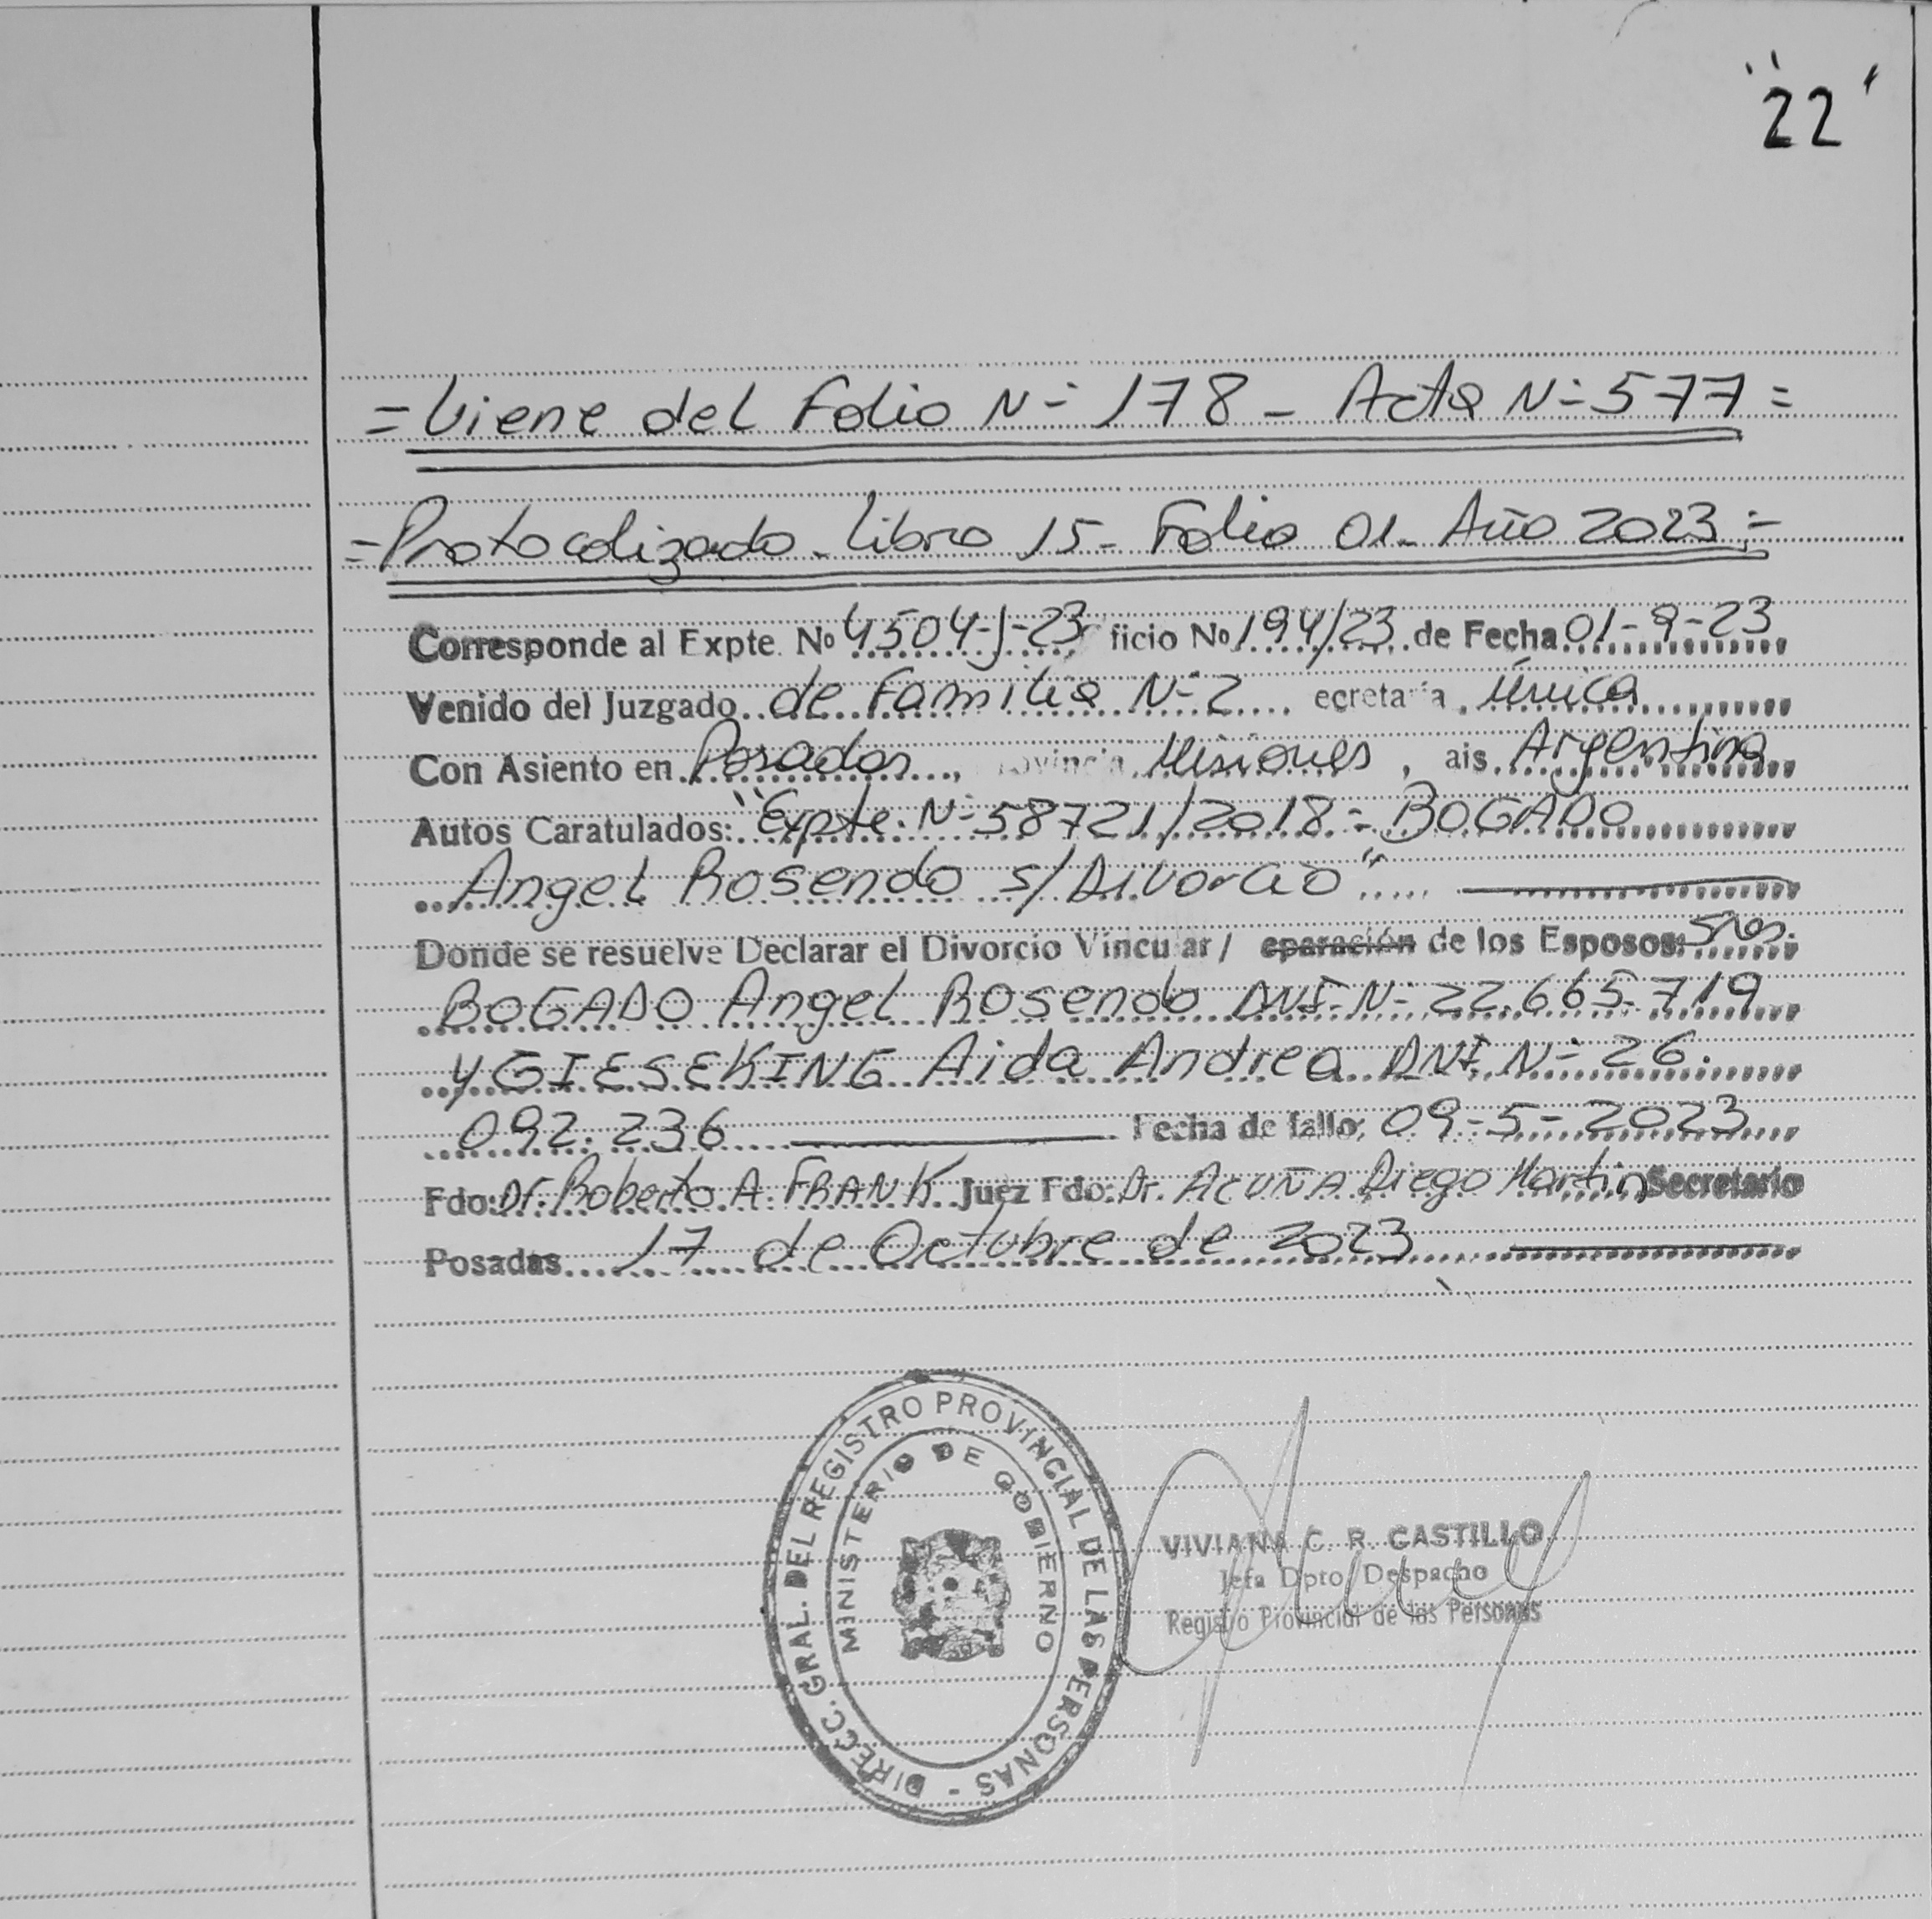 "22"
= Viene del Folio Nº 178 - Acta Nº 577 =
= Protocolizado - Libro 15 - Folio 01 - Año 2023 =
Corresponde al Expte. Nº 4504-J-23 ficio Nº 194/23 de Fecha 01-9-23
Venido del Juzgado de Familia Nº 2 ecretaria Única
Con Asiento en Posadas, rovincia Misiones, ais Argentina
Autos Caratulados: "Expte. Nº 58721/2018 - BOGADO
Angel Rosendo s/Divorcio"
Donde se resuelve Declarar el Divorcio Vincular / eparación de los Esposos: Sres.
BOGADO Angel Rosendo DNI Nº 22.665.719
y GIESEKING Aida Andrea DNI Nº 26.
092.236 Fecha de fallo: 09-5-2023
Fdo: Dr. Roberto A. FRANK Juez Fdo: Dr. ACUÑA Diego Martin Secretario
Posadas 17 de Octubre de 2023
DIRECC. GRAL. DEL REGISTRO PROVINCIAL DE LAS PERSONAS -
MINISTERIO DE GOBIERNO
VIVIANA C. R. CASTILLO
Jefa Dpto Despacho
Registro Provincial de las Personas